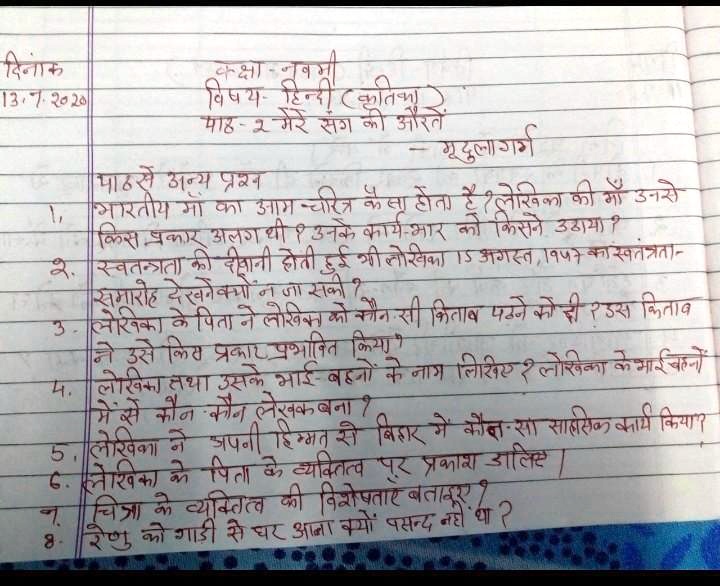 दिनांक कक्षा नवमी
13.7.2020 विषय - हिन्दी (कृतिका)
पाठ - २ मेरे संग की औरतें
- मृदुला गर्ग
पाठ से अन्य प्रश्न
1. भारतीय माँ का आम चरित्र कैसा होता है ? लेखिका की माँ उनसे
किस प्रकार अलग थी ? उनके कार्य-भार को किसने उठाया ?
2. स्वतन्त्रता की दीवानी होती हुई भी लेखिका 15 अगस्त, 1947 का स्वतंत्रता-
समारोह देखने क्यों न जा सकी ?
3. लेखिका के पिता ने लेखिका को कौन-सी किताब पढ़ने को दी ? उस किताब
ने उसे किस प्रकार प्रभावित किया ?
4. लेखिका तथा उसके भाई-बहनों के नाम लिखिए ? लेखिका के भाई बहनों
में से कौन-कौन लेखक बना ?
5. लेखिका ने अपनी हिम्मत से बिहार में कौन-सा साहसिक कार्य किया ?
6. लेखिका के पिता के व्यक्तित्व पर प्रकाश डालिए |
7. चित्रा के व्यक्तित्व की विशेषताएँ बताइए ?
8. रेणु को गाडी से घर आना क्यों पसन्द नहीं था ?